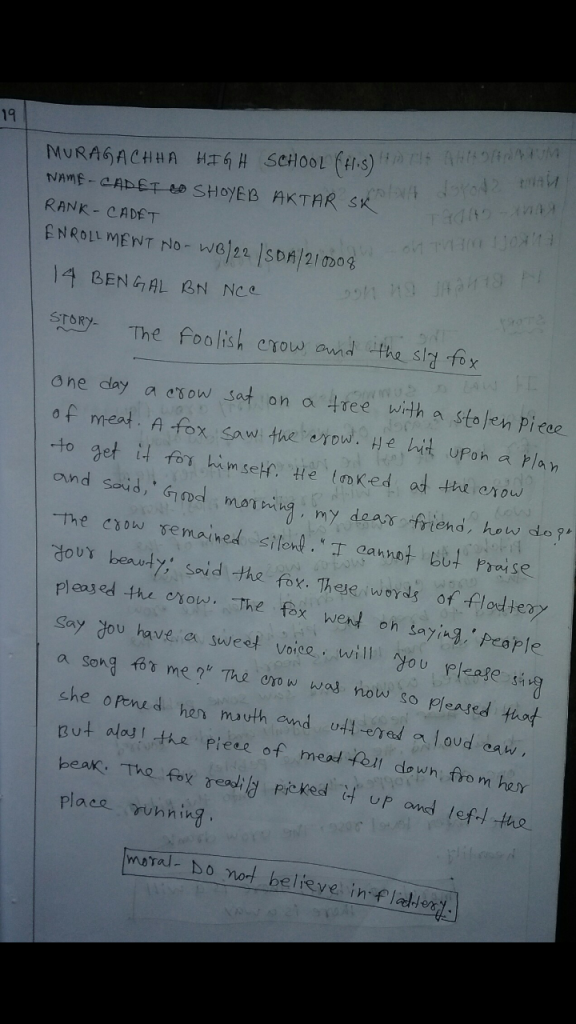 19
MURAGACHHA HIGH SCHOOL (H.S)
NAME - CADET SHOYEB AKTAR SK
RANK - CADET
ENROLLMENT NO - WB/22/SDA/210008
14 BENGAL BN NCC
STORY - The Foolish crow and the sly fox
One day a crow sat on a tree with a stolen piece
of meat. A fox, saw the crow. He hit upon a plan
to get it for himself. He looked at the crow
and said, "Good morning, my dear friend, how do?"
The crow remained silent. "I cannot but praise
your beauty," said the fox. These words of flattery
pleased the crow. The fox went on saying, "people
say you have a sweet voice. will you please sing
a song for me?" The crow was now so pleased that
she opened her mouth and uttered a loud caw,
But alas! the piece of meat fell down from her
beak. The fox readily picked it up and left the
place running.
moral - Do not believe in flattery.